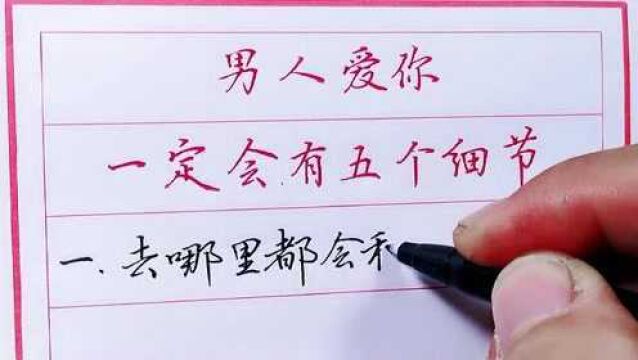 男人爱你
一定会有五个细节
一.去哪里都会和